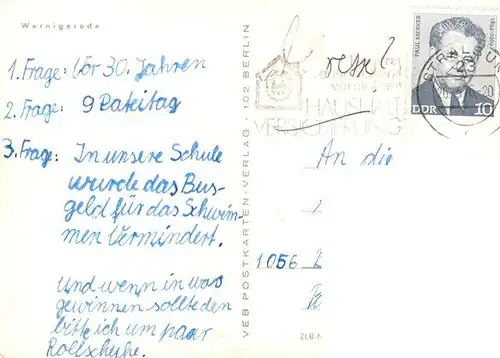 Wernigerode
1. Frage: Vor 30. Jahren
2. Frage: 9 Pateitag
3. Frage: In unsere Schule
wurde das Bus-
geld für das Schwim-
men Vermindert.
Und wenn in was
gewinnen sollte den
bitte ich um paar
Rollscheihe.
VEB POSTKARTEN-VERLAG · 102 BERLIN
HAUSHALT
VERSICHERUNG
PAUL MERKER
DDR 10
An die
1056